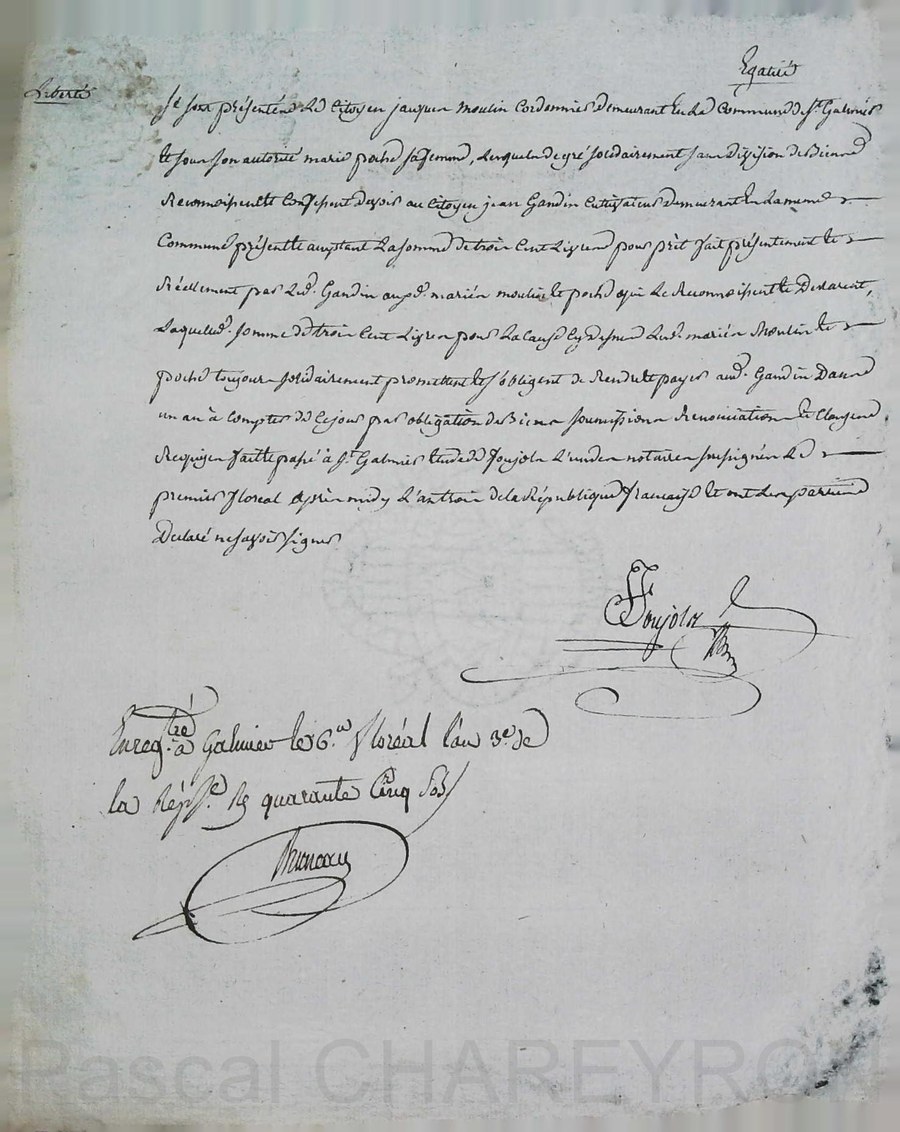 Egalité
Liberté
Se sont présentés Le Citoyen jacques moulin Cordonnier demeurant En La Commune de St Galmier
et sous son autorité marie poche sa femme, Lesquels de gré solidairement sans Division de Biens
Reconnoissent et Confessent devoir au Citoyen jean Gandin Cultivateur demeurant En La meme
Commune présent et acceptant La somme de trois Cent Livres pour prêt fait présentement et
Réellement par Led. Gandin auxd. mariés moulin et poche qui Le Reconnoissent et Declarent,
Laquelle d. somme de trois Cent Livres pour La Cause Cy Dessus Lesd. mariés Moulin et
poche toujours solidairement promettent et s'obligent de Rendre et payer aud. Gandin Dans
un an à Compter de Ce jour par obligation de Biens soumissions Renonciations et Clauses
Requises fait et passé à St Galmier Etude de Foujols L'un des notaires soussignés Le
premier floreal après midy L'an trois de la République francaise et ont Les parties
Declaré ne savoir signer
Foujols
Enregtré à Galmier le 6.e floréal l'an 3.e de
la Rép.e R quarante Cinq Sols